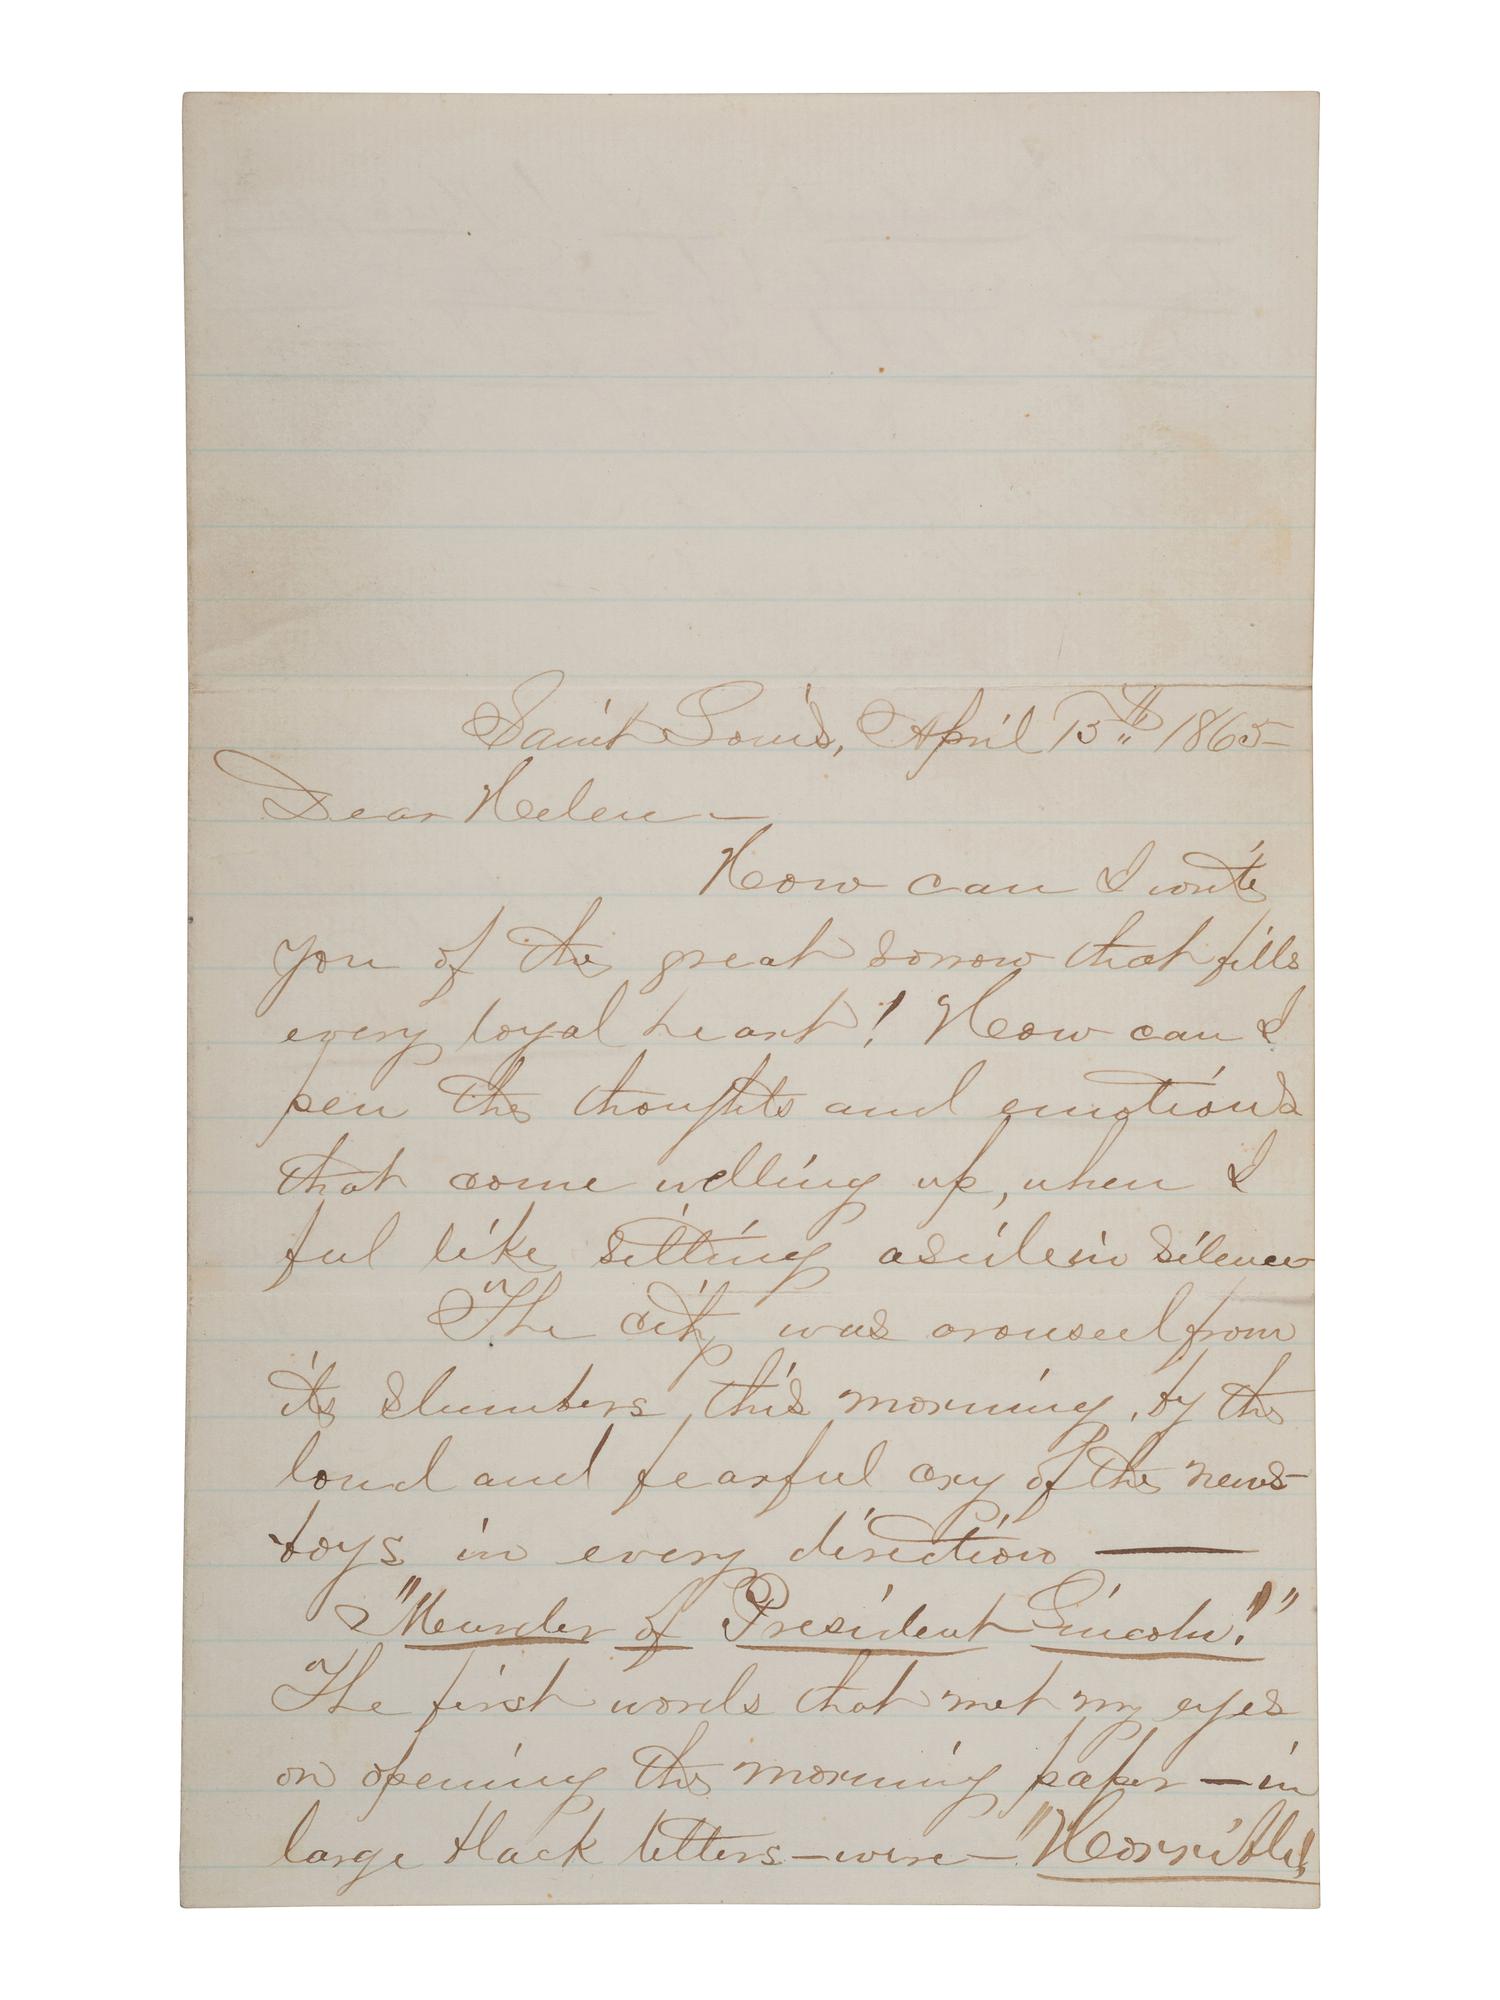 Saint Louis, April 15th 1865—
Dear Helen—
How can I write
you of the great sorrow that fills
every loyal heart! How can I
pen the thoughts and emotions
that come welling up, when I
feel like sitting aside in silence
The city was aroused from
its slumbers this morning, by the
loud and fearful cry of the news-
boys in every direction —
"Murder of President Lincoln!"
The first words that met my eyes
on opening the morning paper — in
large black letters — were — "Horrible!